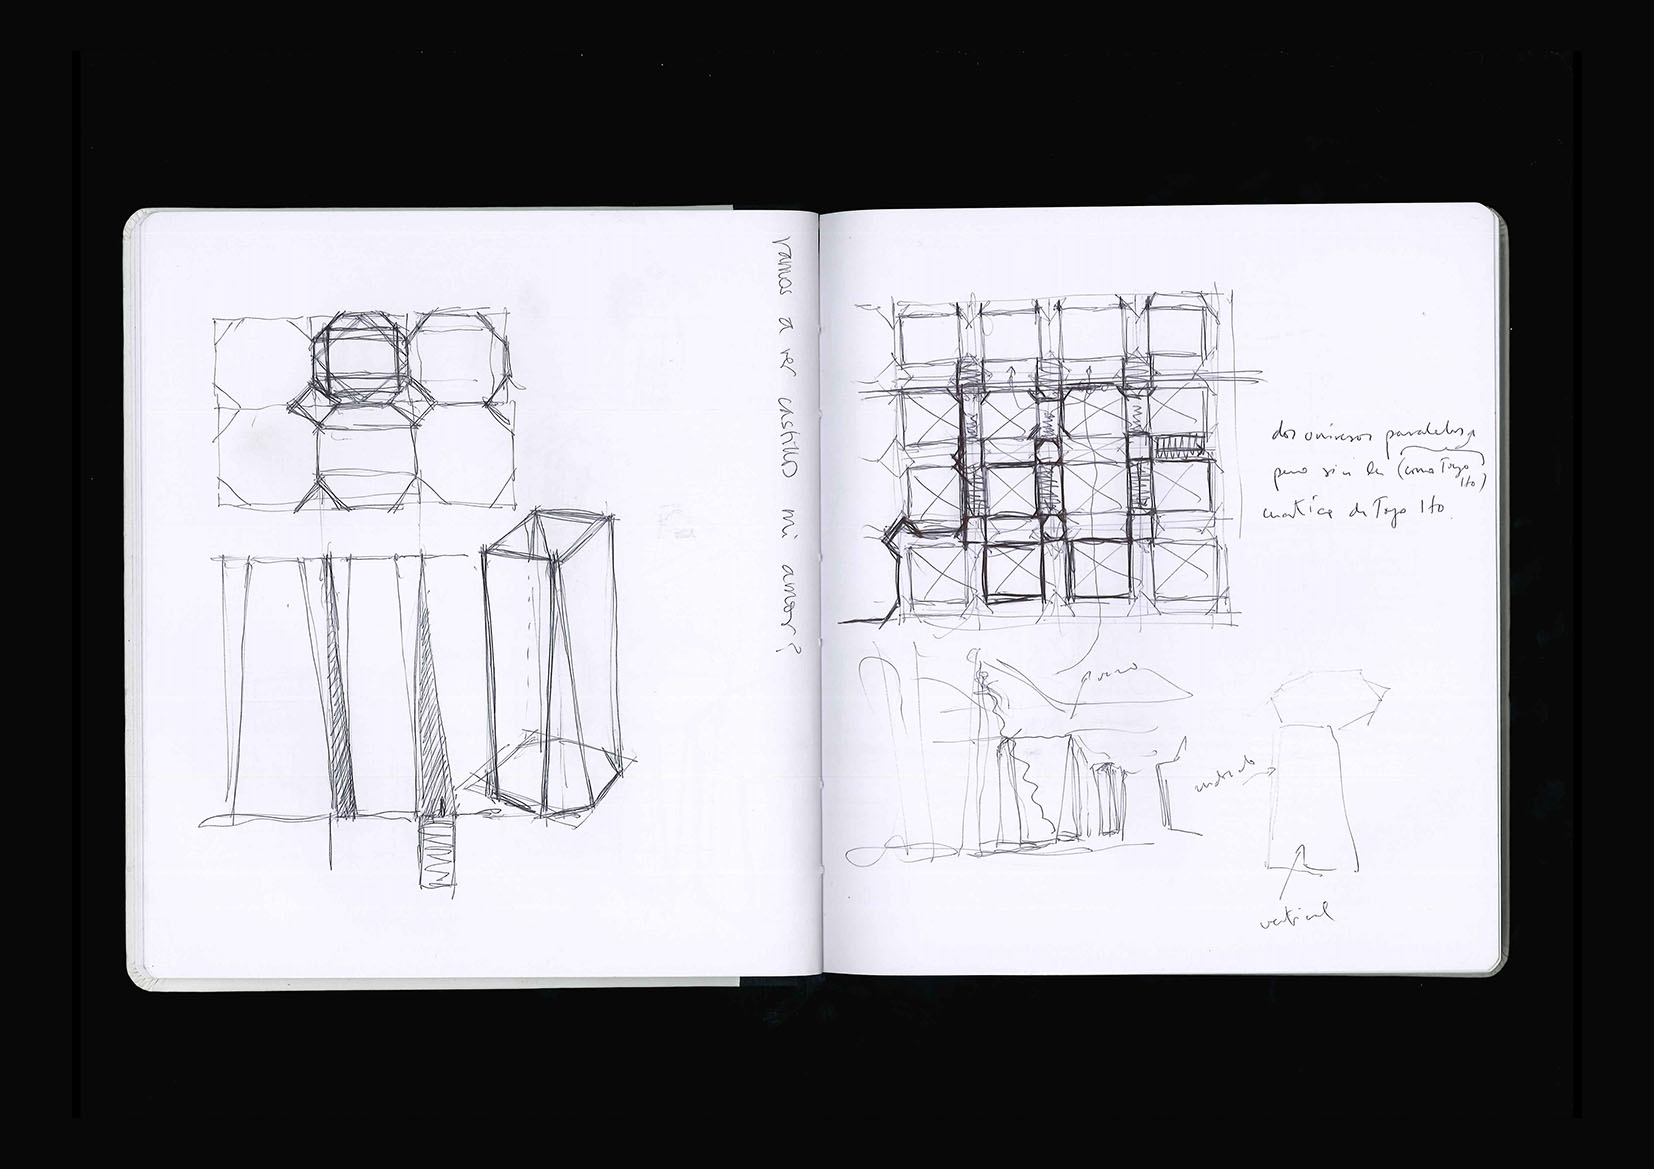 vamos a ver castillo mi amor?
dos universos paralelos,
pero sin la (como Toyo Ito)
de Toyo Ito.
vertical